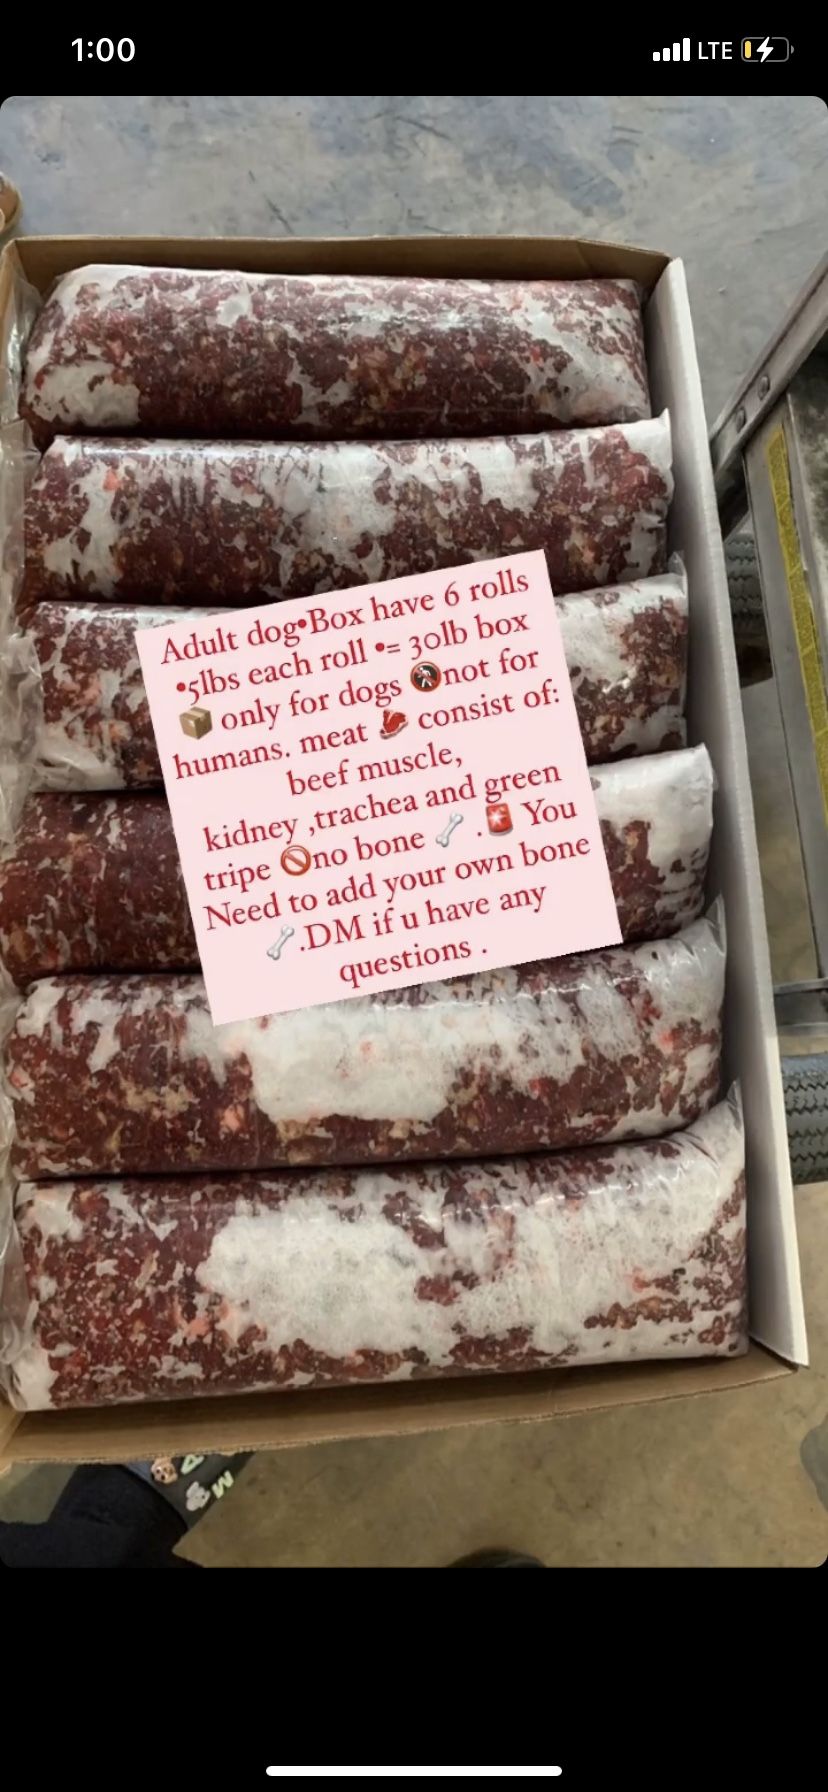 1:00
LTE
Adult dog•Box have 6 rolls
•5lbs each roll •= 30lb box
📦 only for dogs 🚷not for
humans. meat 🥩 consist of:
beef muscle,
kidney ,trachea and green
tripe 🚫no bone 🦴 .🚨 You
Need to add your own bone
🦴.DM if u have any
questions .